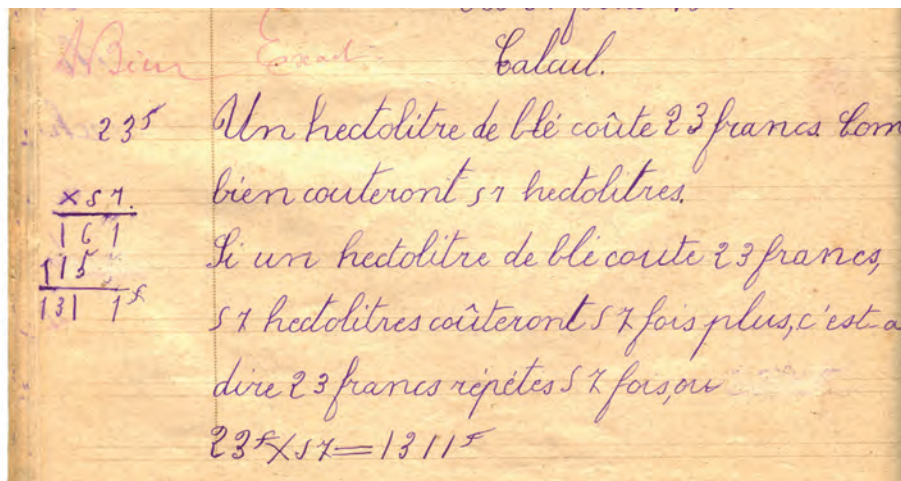 Bien Exact
Calcul.
23f
Un hectolitre de blé coûte 23 francs. Com
x57.
bien couteront 57 hectolitres.
161
Si un hectolitre de blé coute 23 francs,
115
1311f
57 hectolitres coûteront 57 fois plus, c'est-a
dire 23 francs répétes 57 fois, ou
23f x 57 = 1311f